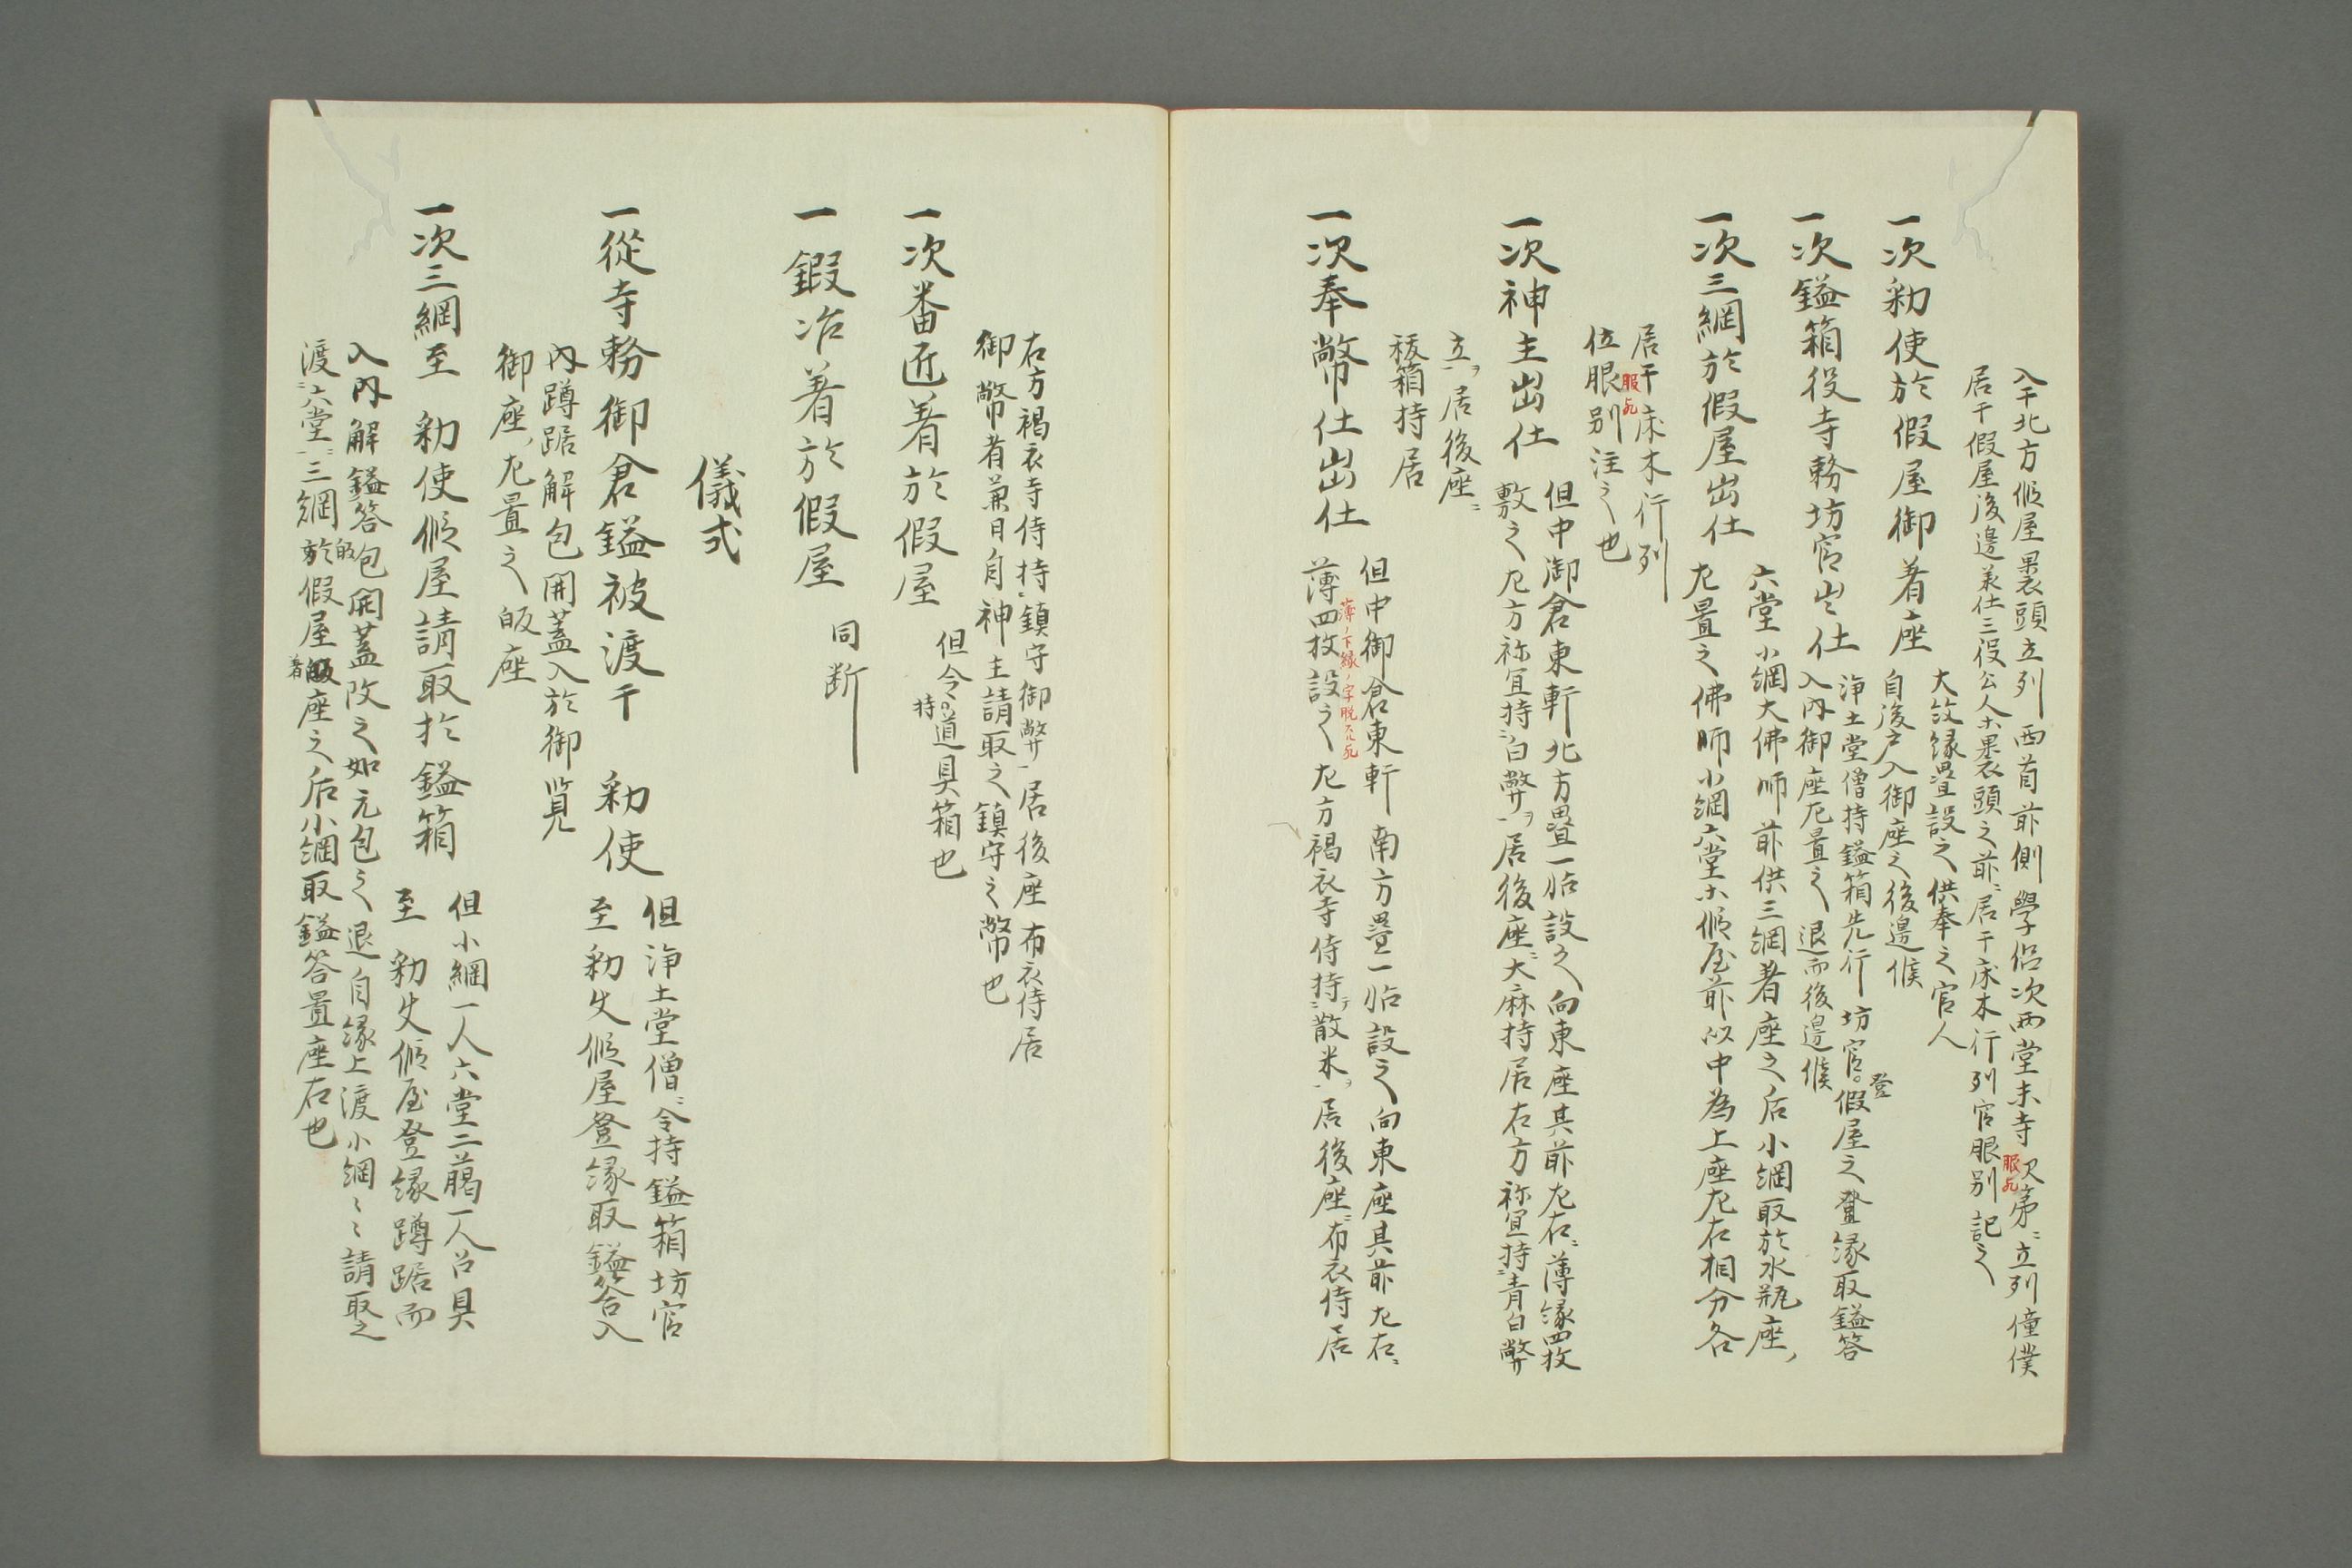 入干北方仮屋裹頭立列　西首前側學侶次両堂末寺次第ニ立列僮僕
居干假屋後邊兼仕三役公人ホ裹頭之前ニ居干床木行列官眼別記之
服欤
一次勅使於假屋御着座
大紋縁畳設之供奉之官人
自後戸入御座之後邊候
一次鎰箱役寺務坊官出仕
浄土堂僧持鎰箱先行　坊官登假屋之登縁取鎰筥
入内御座左置之　退而後邊候
一次三綱於假屋出仕
六堂小綱大佛師前供三綱着座之后小綱取於水瓶座ノ
左置之佛師小綱六堂ホ仮屋前以中為上座左右相分各
居干床木行列
位眼別注之也
服欤
一次神主出仕
但中御倉東軒北方畳一帖設之向東座其前左右ニ薄縁四枚
敷之左方祢宜持ニ白幣ヲ一居後座ニ大麻持居右方祢宜持ニ青白幣
立ヲ一居後座ニ
祓箱持居
一次奉幣仕出仕
但中御倉東軒　南方畳一帖設之向東座其前左右ニ
薄四枚設之左方褐衣寺侍持ニ散米ヲ一居後座ニ布衣侍居
薄ノ下縁ノ字脱スル欤
右方褐衣寺侍持ニ鎮守御幣一居後座布衣侍居
御幣者兼日自神主請取之鎮守之幣也
一次番匠着於假屋
但令持道具箱也
一鍛冶着於假屋
同断
儀式
一從寺務御倉鎰被渡干　勅使
但浄土堂僧ニ令持鎰箱坊官
至勅使仮屋登縁取鎰筥入
内蹲踞解包開蓋入於御覧
御座ノ左置之皈座
一次三綱至　勅使仮屋請取於鎰箱
但小綱一人六堂二﨟一人召具
至　勅使仮屋登縁蹲踞而
入内解鎰筥包開蓋改之如元包之退自縁上渡小綱ミミ請取之
渡ニ六堂一ニ三綱皈於假屋着座之后小綱取鎰筥置座右也